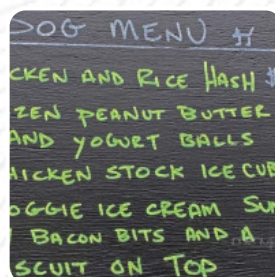 DOG MENU
CKEN AND RICE HASH $
ZEN PEANUT BUTTER
AND YOGURT BALLS
HICKEN STOCK ICE CUB
OGGIE ICE CREAM SUN
BACON BITS AND A
SCUIT ON TOP